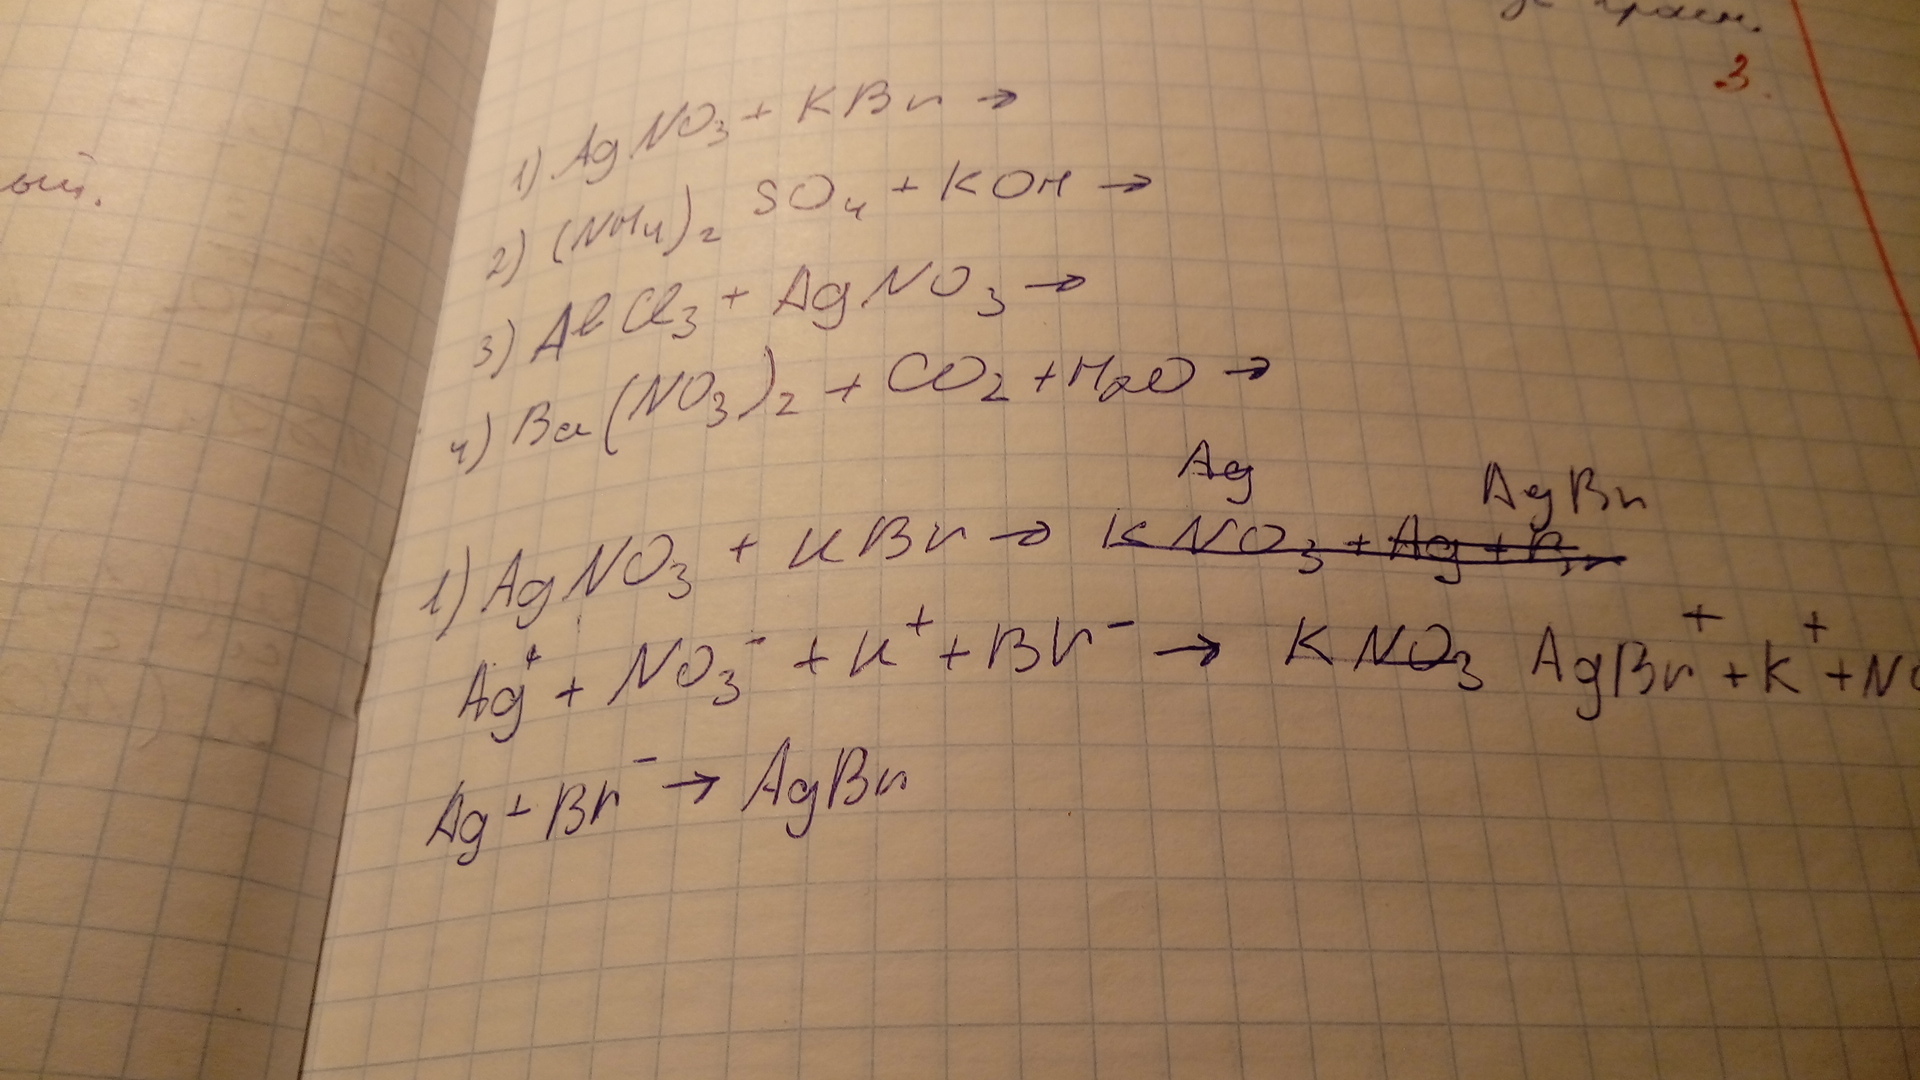 3.
ый.
1) AgNO3 + KBr →
2) (NH4)2 SO4 + KOH →
3) AlCl3 + AgNO3 →
4) Ba(NO3)2 + CO2 + H2O →
Ag AgBr
1) AgNO3 + KBr → KNO3 + Ag + Br
Ag+ + NO3- + K+ + Br- → KNO3 AgBr+ + K+ + NO
Ag + Br- → AgBr